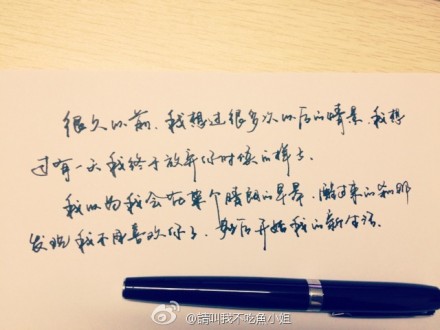 很久以前，我想过很多次以后的情景，我想
过有一天我终于放弃你时候的样子。
我以为我会在某个晴朗的早晨，醒过来的刹那
发现我不再喜欢你了，然后开始我的新生活。
@請叫我不吃魚小姐